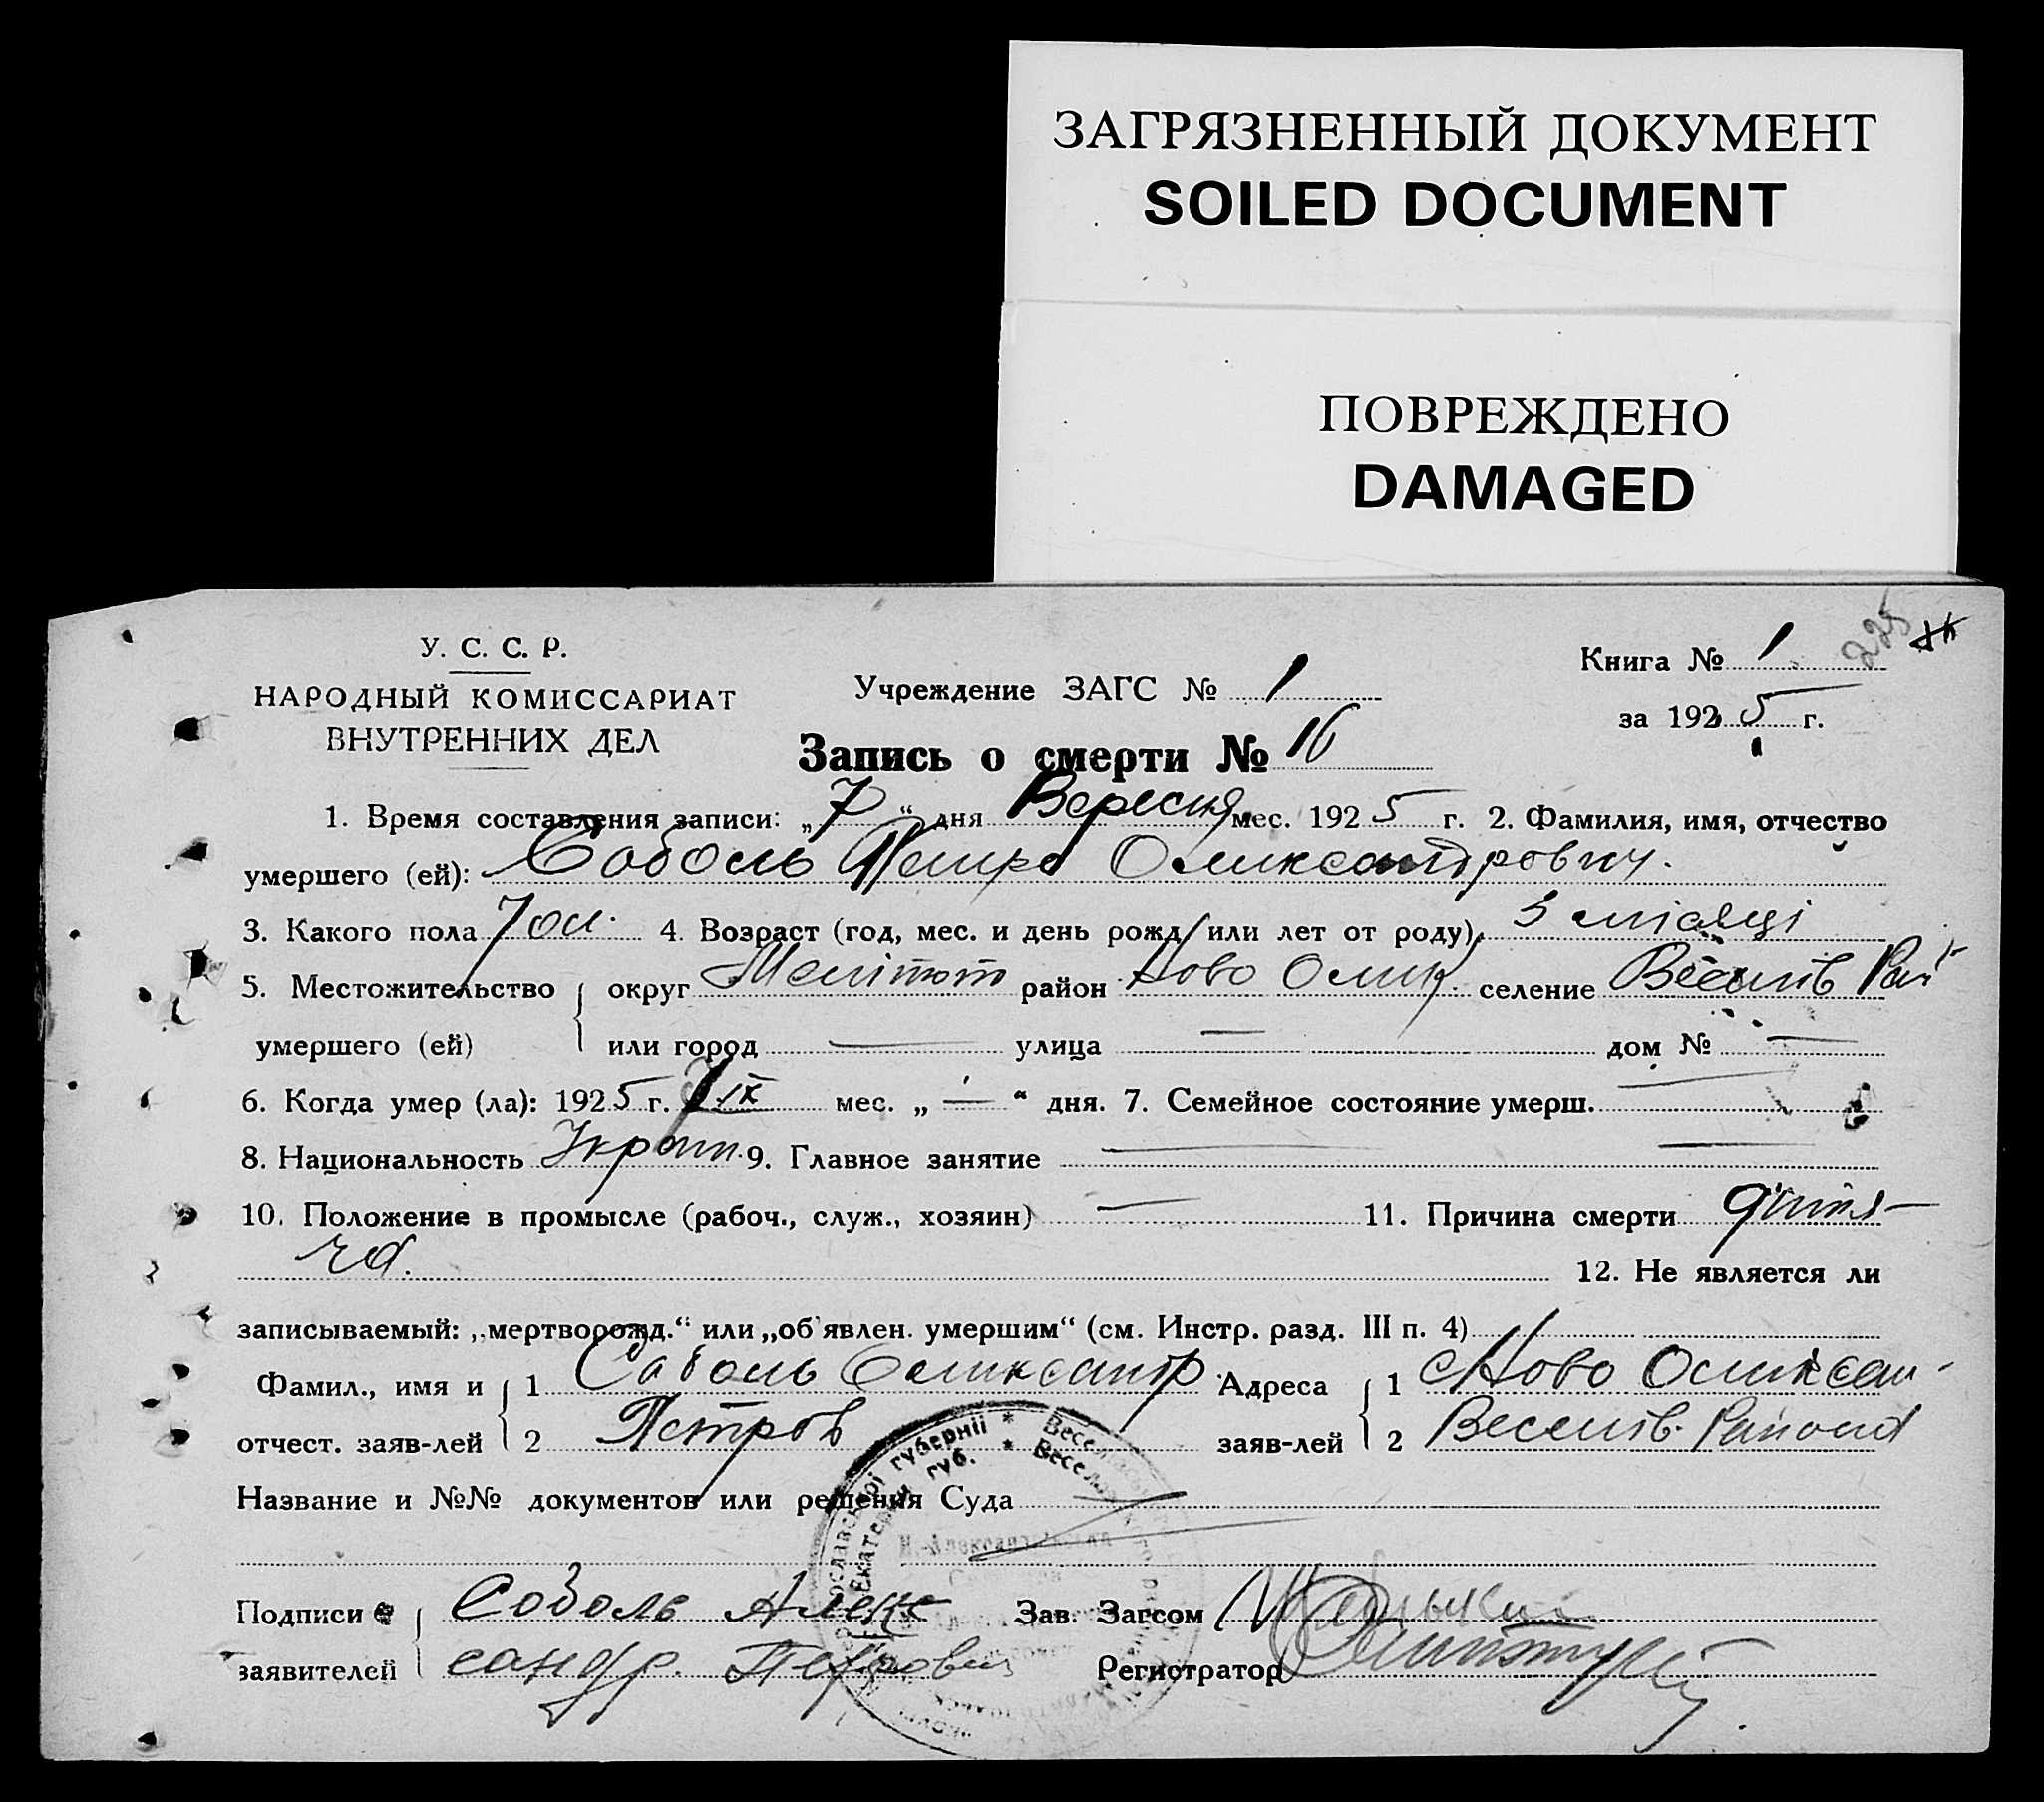 ЗАГРЯЗНЕННЫЙ ДОКУМЕНТ
SOILED DOCUMENT
ПОВРЕЖДЕНО
DAMAGED
225
У. С. С. Р.
НАРОДНЫЙ КОМИССАРИАТ
ВНУТРЕННИХ ДЕЛ
Учреждение ЗАГС № 1
Книга № 1
за 1925 г.
Запись о смерти № 16
1. Время составления записи: „7“ дня Вересня мес. 1925 г. 2. Фамилия, имя, отчество
умершего (ей): Соболь Петро Олександрович.
3. Какого пола чол. 4. Возраст (год, мес. и день рожд. или лет от роду) 3 місяці
5. Местожительство округ Меліт район Ново Олик. селение Веселів Рай
умершего (ей) или город — улица — дом № —
6. Когда умер (ла): 1925 г. IX мес. „ — “ дня. 7. Семейное состояние умерш. —
8. Национальность Україн. 9. Главное занятие —
10. Положение в промысле (рабоч., служ., хозяин) — 11. Причина смерти дитя-
ча. 12. Не является ли
записываемый: „мертворожд.“ или „об'явлен. умершим“ (см. Инстр. разд. III п. 4)
Фамил., имя и 1 Соболь Олександр. Адреса 1 Ново Олексан-
отчест. заяв-лей 2 Петров заяв-лей 2 Веселів. Району
Название и №№ документов или решения Суда
Подписи Соболь Алек Зав. Загсом
заявителей сандр. Петрович Регистратор
губернії * Весел
губ. * Весел